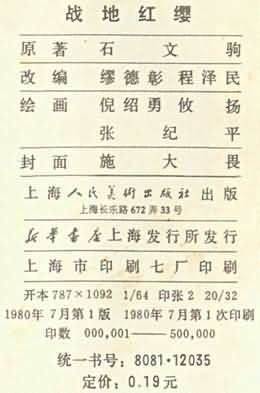 战地红缨
原著 石文驹
改编 缪德彰 程泽民
绘画 倪绍勇 攸扬
张纪平
封面 施大畏
上海人民美術出版社出版
上海长乐路672弄33号
新华書店上海发行所发行
上海市印刷七厂印刷
开本787×1092 1/64 印张2 20/32
1980年7月第1版 1980年7月第1次印刷
印数 000,001——500,000
统一书号：8081·12035
定价：0.19元